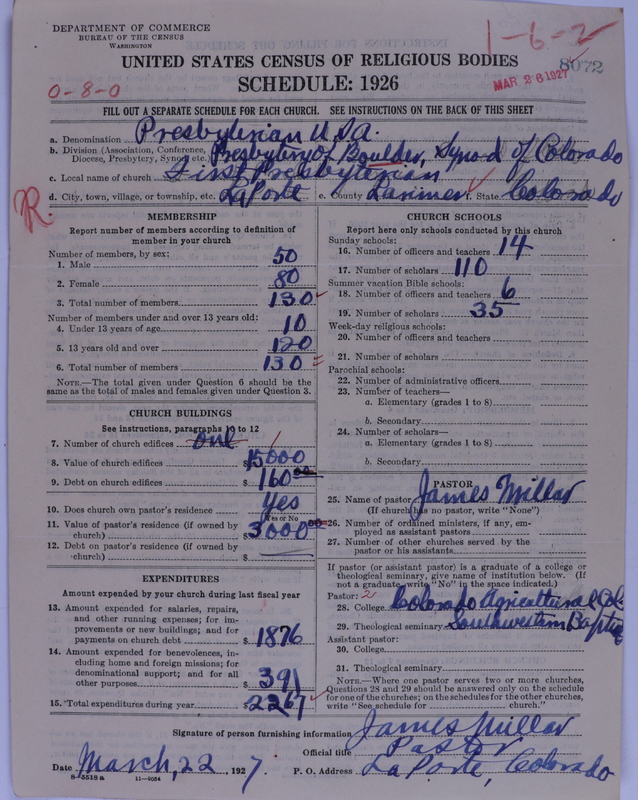 DEPARTMENT OF COMMERCE
BUREAU OF THE CENSUS
WASHINGTON
1-6-2
8072
MAR 26 1927
0-8-0
UNITED STATES CENSUS OF RELIGIOUS BODIES
SCHEDULE: 1926
FILL OUT A SEPARATE SCHEDULE FOR EACH CHURCH. SEE INSTRUCTIONS ON THE BACK OF THIS SHEET
a. Denomination Presbyterian U.S.A.
b. Division (Association, Conference, Diocese, Presbytery, Synod, etc.) Presbytery of Boulder, Synod of Colorado
c. Local name of church First Presbyterian
d. City, town, village, or township, etc. LaPorte e. County Larimer f. State Colorado
R.
MEMBERSHIP
Report number of members according to definition of
member in your church
Number of members, by sex:
1. Male 50
2. Female 80
3. Total number of members 130
Number of members under and over 13 years old:
4. Under 13 years of age 10
5. 13 years old and over 120
6. Total number of members 130
NOTE.—The total given under Question 6 should be the
same as the total of males and females given under Question 3.
CHURCH BUILDINGS
See instructions, paragraphs 10 to 12
7. Number of church edifices one
8. Value of church edifices $15000
9. Debt on church edifices $160.00
10. Does church own pastor's residence yes
Yes or No
11. Value of pastor's residence (if owned by
church) $3000.00
12. Debt on pastor's residence (if owned by
church) $
EXPENDITURES
Amount expended by your church during last fiscal year
13. Amount expended for salaries, repairs,
and other running expenses; for im-
provements or new buildings; and for
payments on church debt $1876
14. Amount expended for benevolences, in-
cluding home and foreign missions; for
denominational support; and for all
other purposes $391
15. Total expenditures during year $2267
CHURCH SCHOOLS
Report here only schools conducted by this church
Sunday schools:
16. Number of officers and teachers 14
17. Number of scholars 110
Summer vacation Bible schools:
18. Number of officers and teachers 6
19. Number of scholars 35
Week-day religious schools:
20. Number of officers and teachers
21. Number of scholars
Parochial schools:
22. Number of administrative officers
23. Number of teachers—
a. Elementary (grades 1 to 8)
b. Secondary
24. Number of scholars—
a. Elementary (grades 1 to 8)
b. Secondary
PASTOR
25. Name of pastor James Millar
(If church has no pastor, write "None")
26. Number of ordained ministers, if any, em-
ployed as assistant pastors
27. Number of other churches served by the
pastor or his assistants
If pastor (or assistant pastor) is a graduate of a college or
theological seminary, give name of institution below. (If
not a graduate write "No" in the space indicated.)
Pastor: 2
28. College Colorado Agricultural Col
29. Theological seminary Southwestern Baptist
Assistant pastor:
30. College
31. Theological seminary
NOTE.—Where one pastor serves two or more churches,
Questions 28 and 29 should be answered only on the schedule
for one of the churches; on the schedules for the other churches,
write "See schedule for church."
Signature of person furnishing information James Millar
Official title Pastor
Date March, 22 1927 P. O. Address LaPorte, Colorado
8-5518 a 11-9034